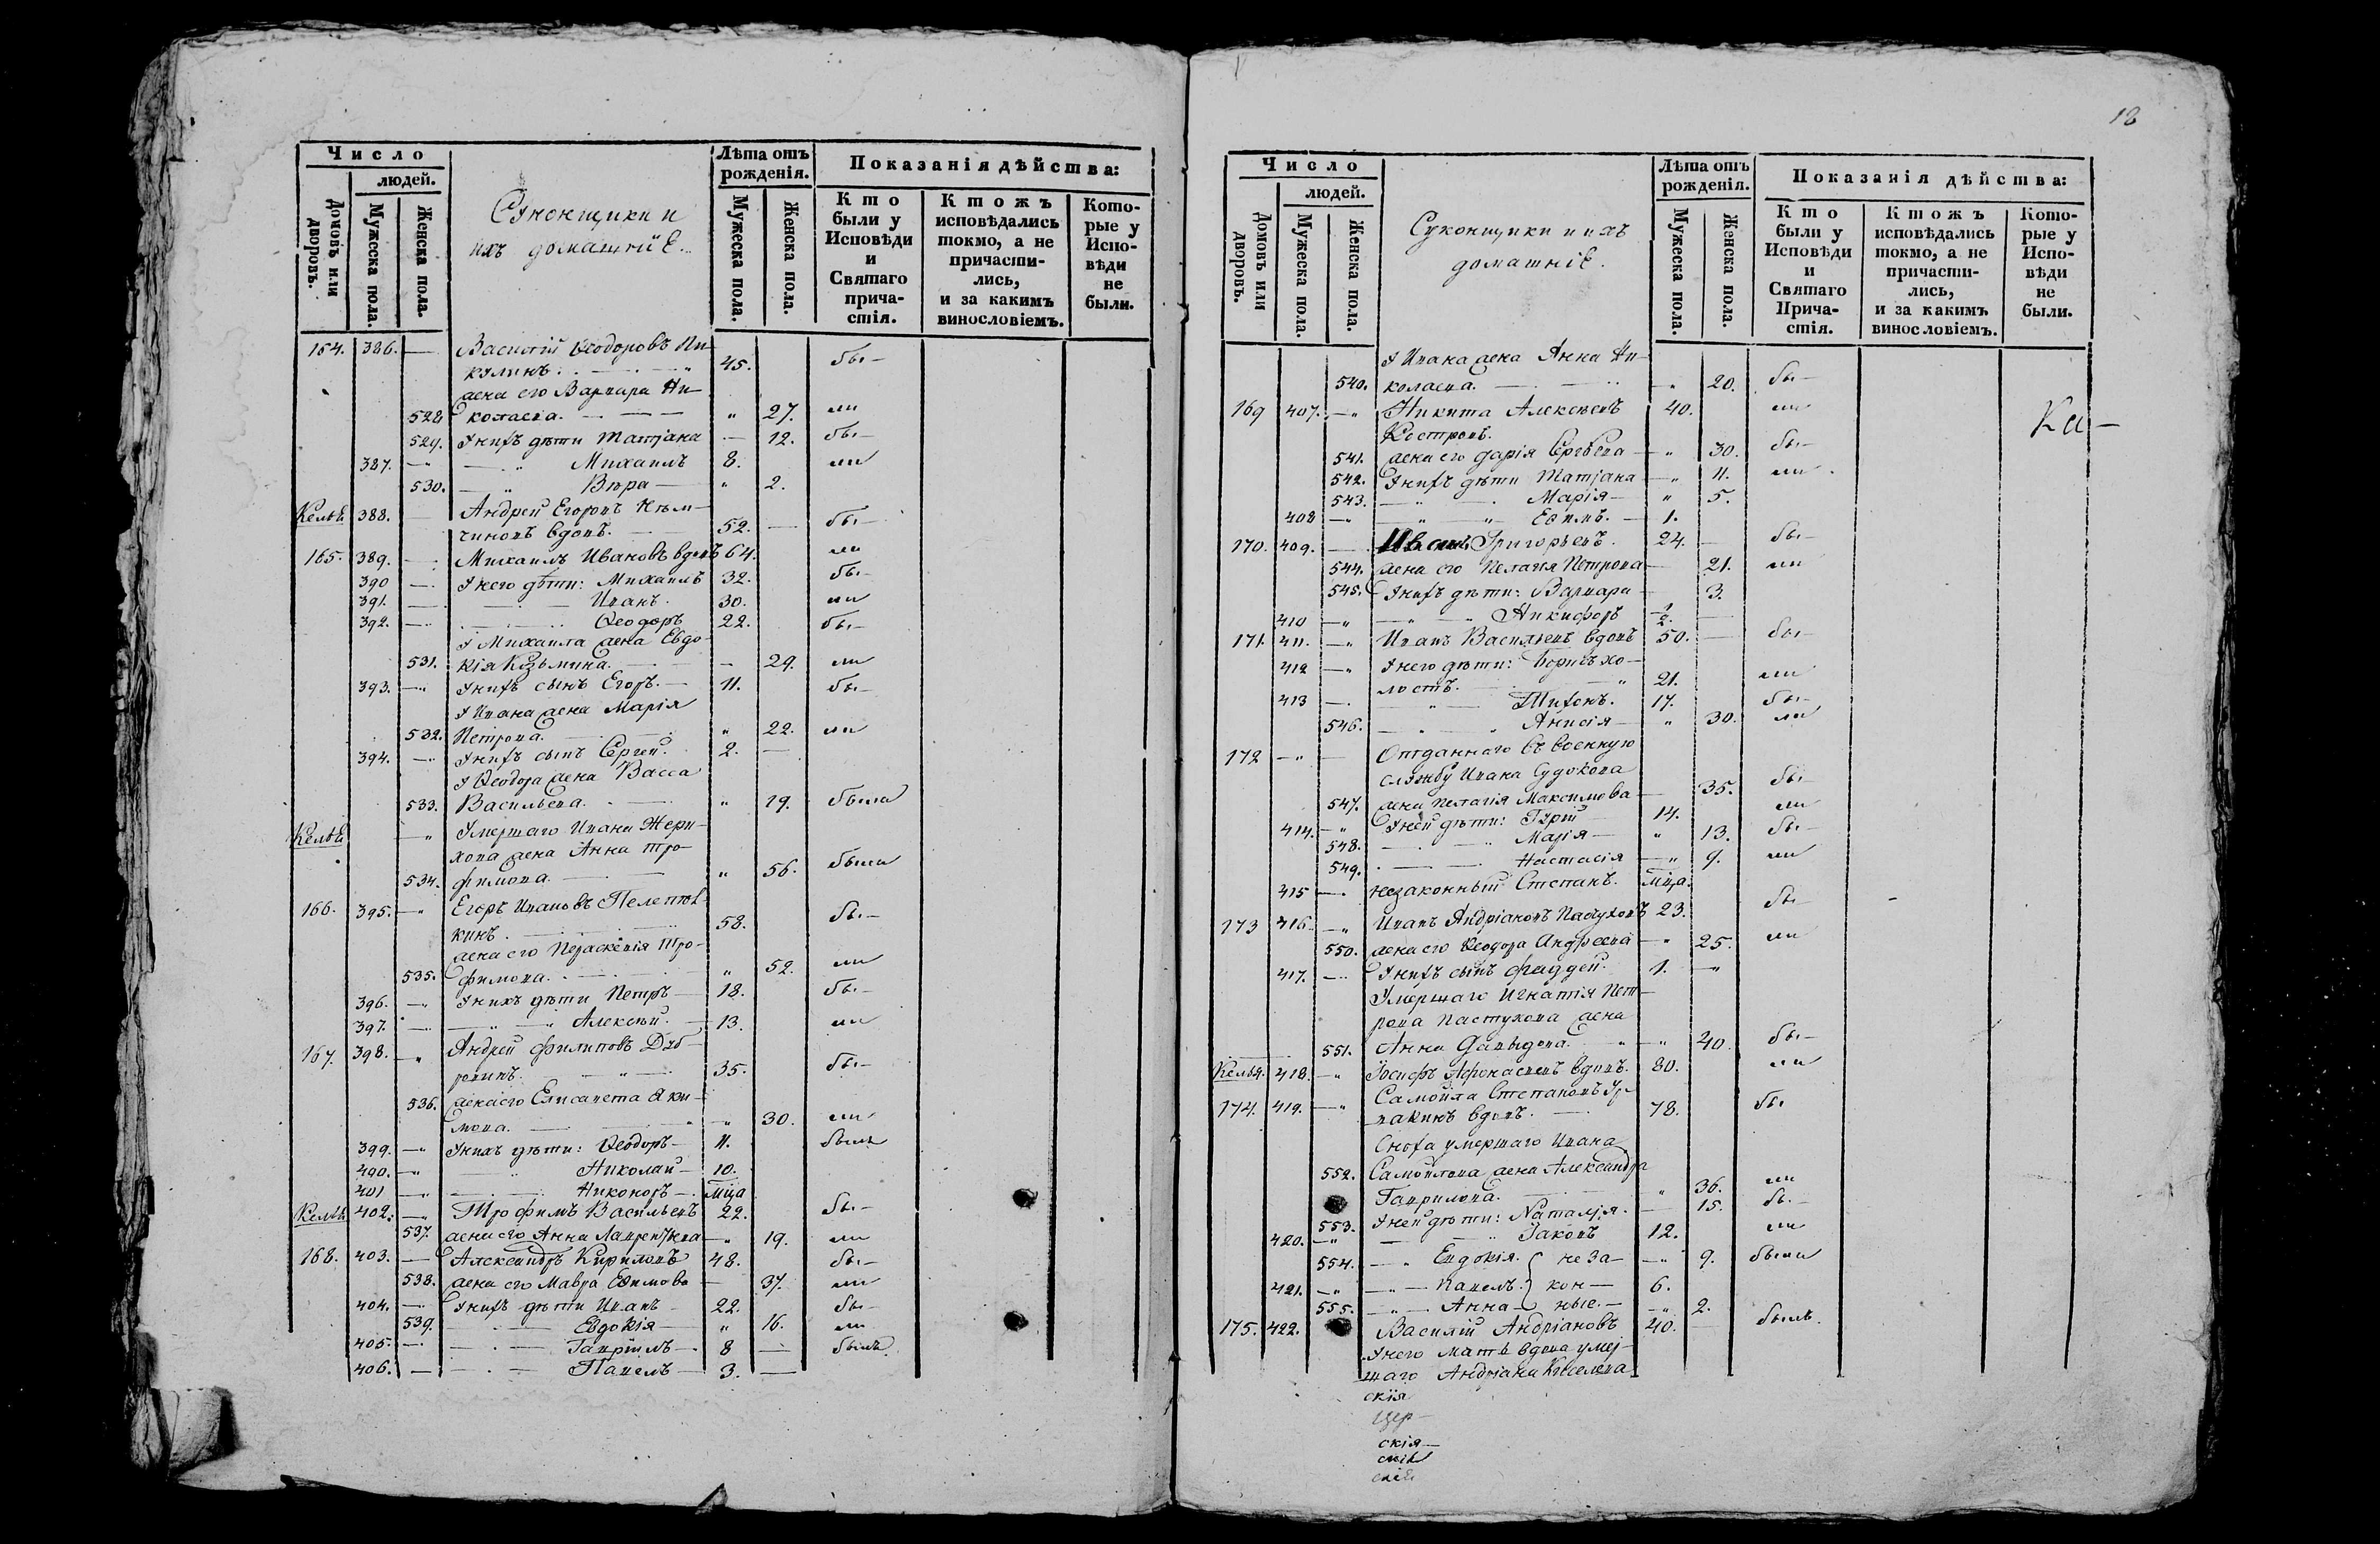 Число
людей.
Домовъ или дворовъ.
Мужеска пола.
Женска пола.
Суконщики и
ихъ домашніе.
Лѣта отъ рожденія.
Мужеска пола.
Женска пола.
Показанія дѣйства:
Кто были у Исповѣди и Святаго причастія.
Ктожъ исповѣдались токмо, а не причасти-лись, и за какимъ винословіемъ.
Кото-рые у Испо-вѣди не были.
164. 386. — Василій Ѳеодоровъ Ни-
кулинъ. 45. бы-
жена его Варвара Ни-
528 колаева. — " 27. ли
529. У нихъ дѣти Татіана — 12. бы-
387. — " Михаилъ 8. ли
530. — " Вѣра — " 2.
Келья 388. — Андрей Егоровъ Нѣм-
чиновъ вдовъ. 52. — бы-
165. 389. — Михаилъ Ивановъ вдовъ 64. ли
390 — У него дѣти: Михаилъ 32. бы-
391. — Иванъ. 30. ли
392. — Ѳеодоръ 22. бы-
У Михаила жена Евдо-
531. кія Козьмина. — 29. ли
393. — У нихъ сынъ Егоръ. — 11. бы-
У Ивана жена Марія
532. Петрова. " 22. ли
394. — У нихъ сынъ Сергей. 2. —
У Ѳеодора жена Васса
533. Васильева. — " 19. была
Келья — " Умершаго Ивана Жери-
хова жена Анна Тро-
534. фимова. — " 56. была
166. 395. — " Егоръ Ивановъ Пелепѣл-
кинъ. 58. бы-
жена его Параскевія Тро-
535. фимова. " 52. ли
396. — У нихъ дѣти Петръ — 18. бы-
397. — " Алексѣй. — 13. ли
167. 398. — " Андрей Филиповъ Дуб-
ровинъ. — " — 35. бы-
536. жена его Елисавета Яки-
мова. — " 30. ли
399. — " У нихъ дѣти: Ѳеодоръ — 11. былъ
400. — " Николай — 10.
401 — " Никоноръ — . мѣца
Келья 402. — Трофимъ Васильевъ 22. бы-
537. жена его Анна Лаврентьева — " 19. ли
168. 403. — Александръ Кириловъ 48. бы-
538. жена его Мавра Ефимова — 37. ли
404. — У нихъ дѣти Иванъ 22. бы-
539. — Евдокія — " 16. ли
405. — . — Гавріилъ — . 8 — былъ
406. — — . — Павелъ — 3. —
18
Число
людей.
Домовъ или дворовъ.
Мужеска пола.
Женска пола.
Суконщики и ихъ
домашніе.
Лѣта отъ рожденія.
Мужеска пола.
Женска пола.
Показанія дѣйства:
Кто были у Исповѣди и Святаго Прича-стія.
Ктожъ исповѣдались токмо, а не причасти-лись, и за какимъ винословіемъ.
Кото-рые у Испо-вѣди не были.
У Ивана жена Анна Ни-
540. колаева. — " 20. бы-
169 407. — " Никита Алексѣевъ 40. ли
Костровъ.
Ка —
541. жена его Дарія Сергѣева — " 30. бы-
542. У нихъ дѣти Татіана — " 11. ли
543. — " Марія — " 5.
408 — " Ефимъ. — 1.
170. 409. — Иванъ Григорьевъ. 24. — бы-
544. жена его Пелагія Петрова — 21. ли
545. У нихъ дѣти: Варвара — 3.
410 — " Никифоръ 1/2. —
171. 411. — " Иванъ Васильевъ вдовъ 50. — бы-
412 — " У него дѣти: Борисъ хо-
лостъ. " 21. ли
413 — . — " Тихонъ. 17. бы-
546. — " Анисія — " 30. ли
172 — " — Отданнаго въ военную
службу Ивана Судокова
547. жена Пелагія Максимова — 35. бы-
414. — " У ней дѣти: Гурій 14. ли
548. — " Марія — " 13. бы-
549. — Настасія — " 9. ли
415 — . незаконный Степанъ. мѣца.
173 416 — " Иванъ Андріановъ Пастуховъ 23. бы-
550. жена его Ѳеодора Андреева — " 25. ли
417. — У нихъ сынъ Фаддей. 1. — "
Умершаго Игнатія Пет-
рова Пастухова жена
551. Анна Давыдова. " — " 40. бы-
Келья. 418. — " Іосифъ Афонасьевъ вдовъ. 80. ли
174. 419. — " Самойла Степановъ Ур-
вакинъ вдовъ. — 78. бы
Сноха умершаго Ивана
552. Самойлова жена Александра
Гаврилова. " 36. ли
553. У ней дѣти: Наталія. — 15. бы-
420. — " Іаковъ 12. ли
554. — " Евдокія. { не за- — " 9. была
421. — " — Павелъ. } кон — 6.
555. — " — Анна — ные. — — " 2.
175. 422. Василій Андріановъ 40. былъ.
У него мать вдова умер-
шаго Андріана Киселева
скія
цер-
скія—
скія
скія